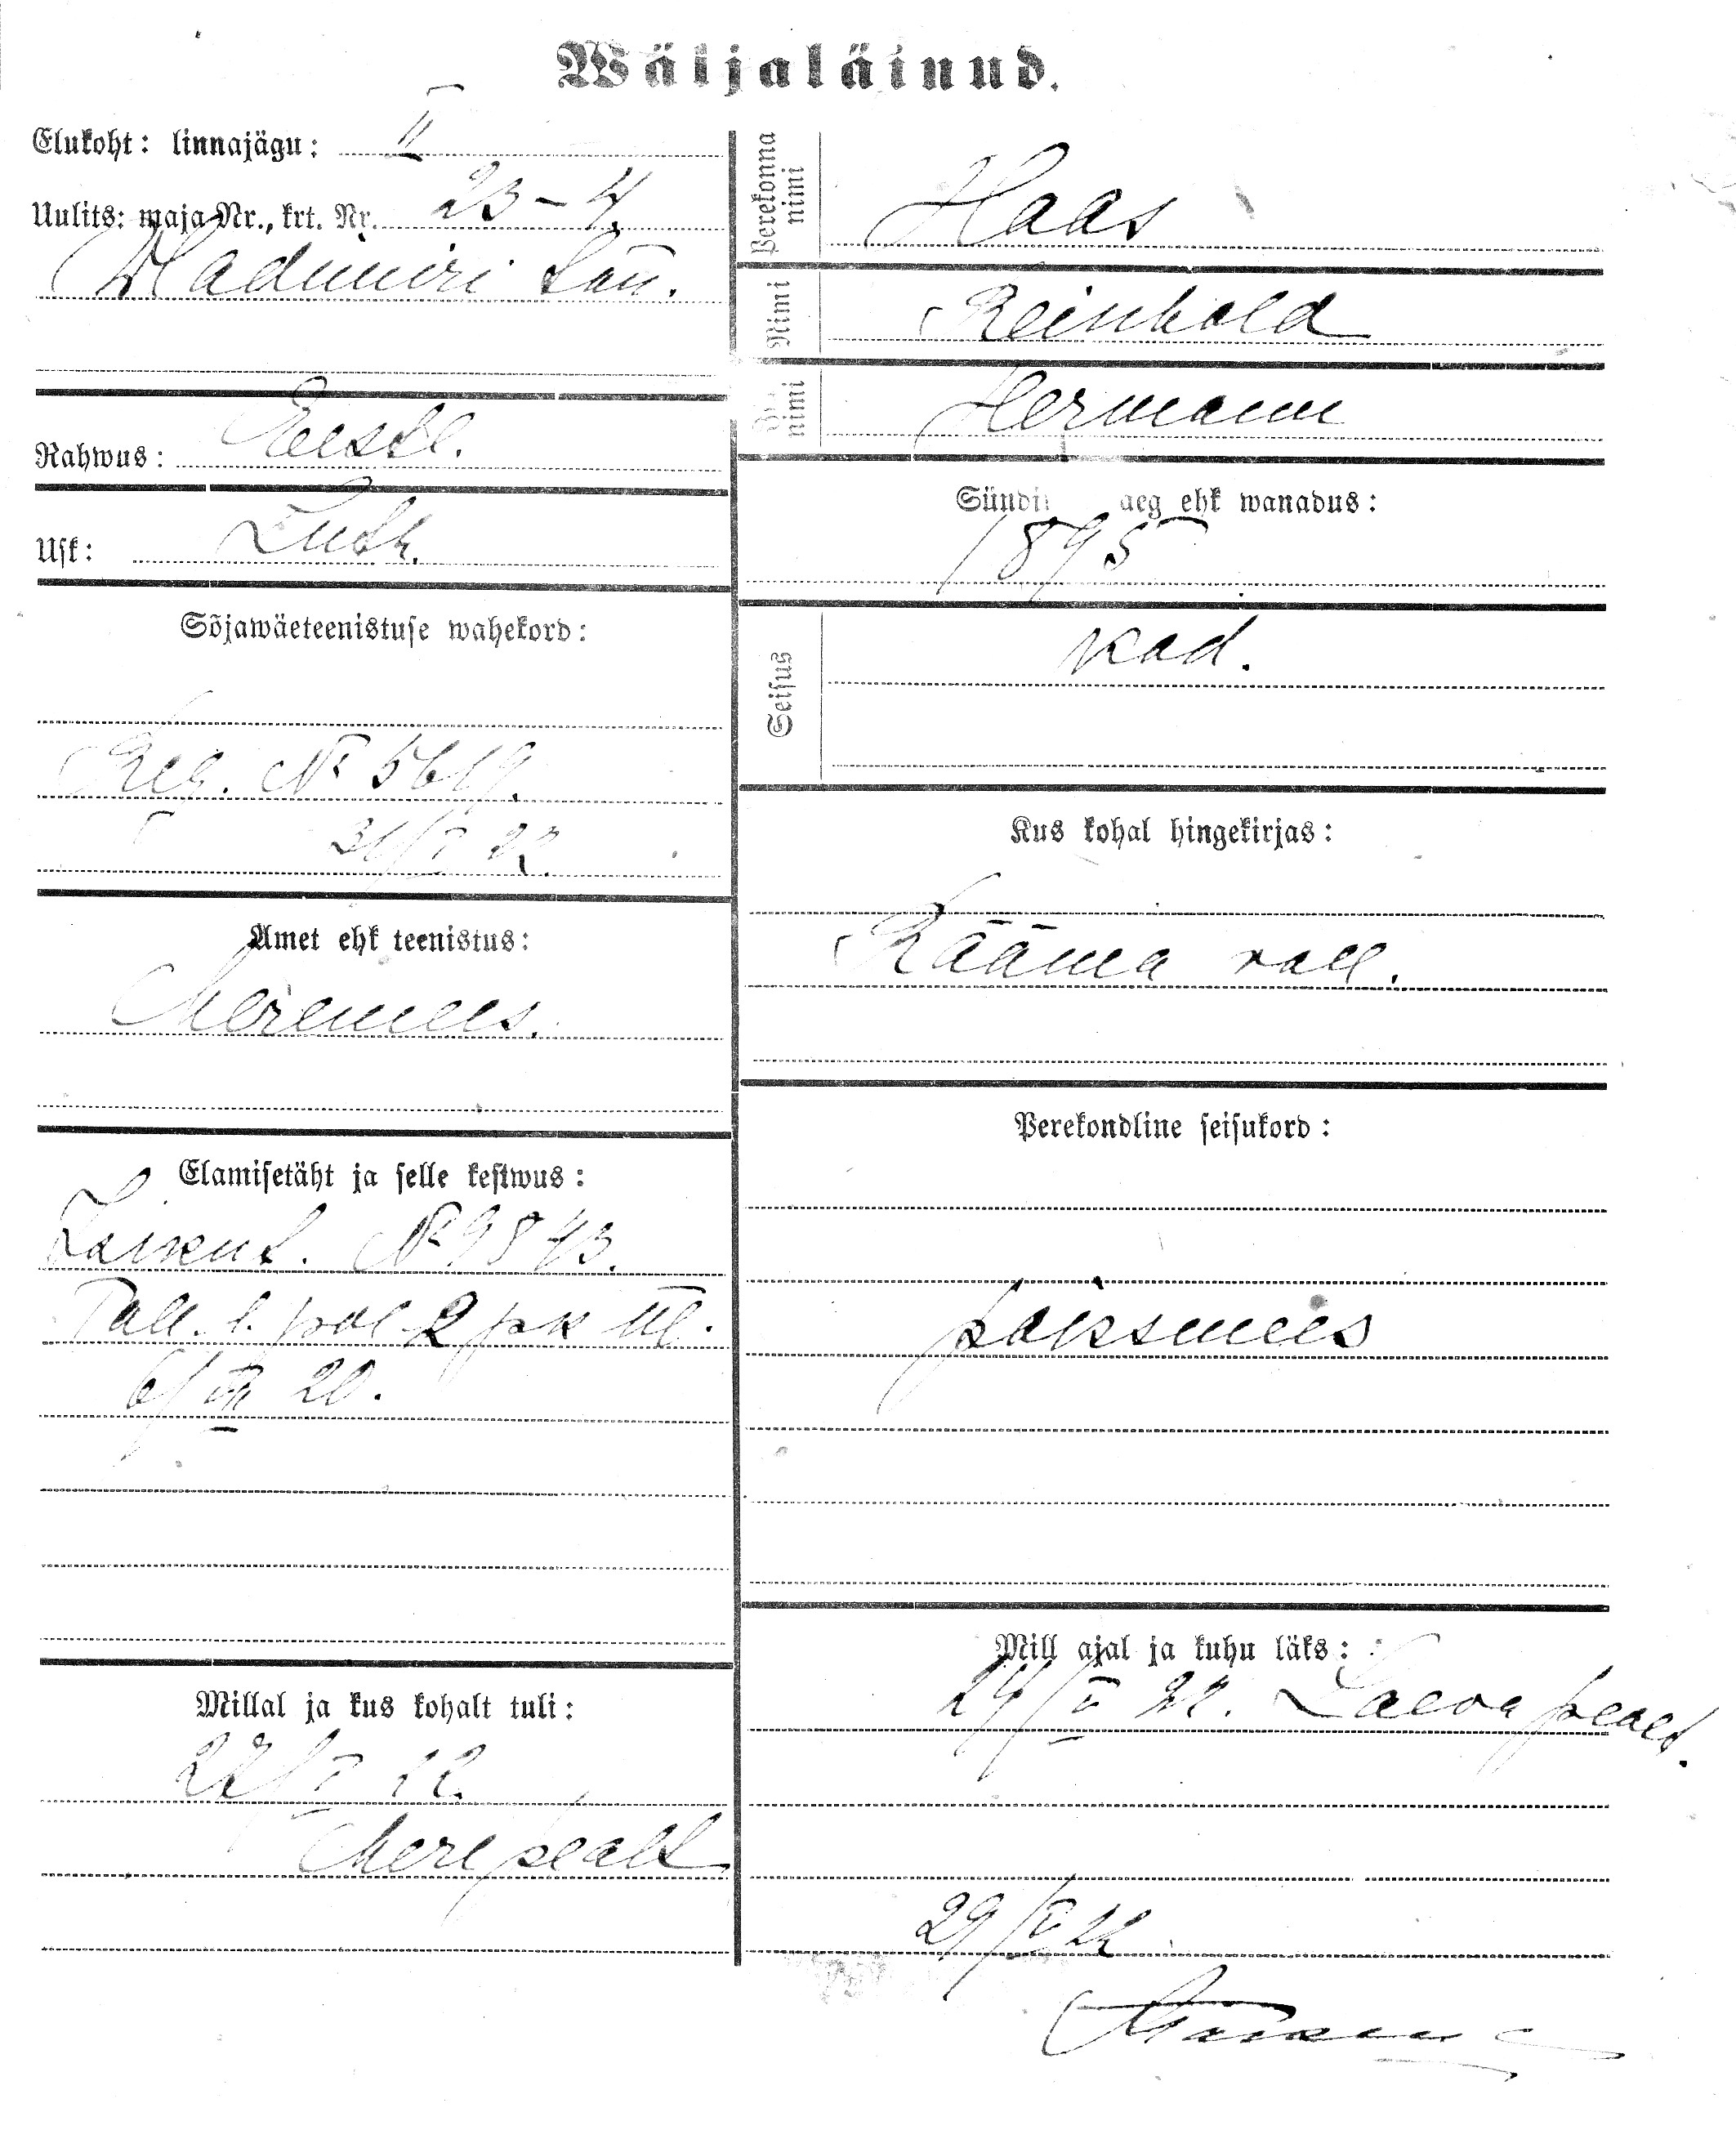 Wäljaläinud.
Elukoht: linnajägu: II
Uulits: maja Nr., krt. Nr. 23-4.
Wladimiri tän.
Rahwus: Eestl.
Usk: Luth.
Sõjawäeteenistuse wahekord:
Reg. № 5619.
31/V 22.
Amet ehk teenistus:
Meremees.
Elamisetäht ja selle kestwus:
Isikut. № 9843.
Tall. l. pol 2 jsk ül.
6/VII 20.
Millal ja kus kohalt tuli:
22/V 22.
Mere pealt
Perekonna nimi
Haas
Nimi
Reinhold
nimi
Hermann
Sündi aeg ehk wanadus:
1895
Seisus
kod.
Kus kohal hingekirjas:
Rääma vall.
Perekondline seisukord:
poissmees
Mill ajal ja kuhu läks:
24/V 22. Laeva pealt.
29/V 22